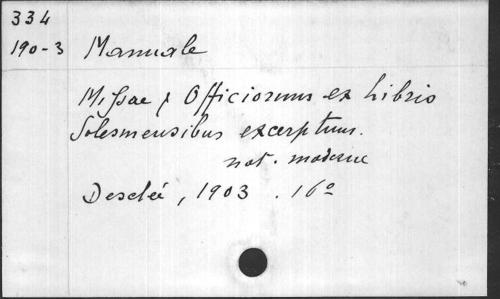 334
190-3 Manuale
Missae & Officiorum ex Libris
Solesmensibus excerptum.
not. moderne
Desclée, 1903 . 16º